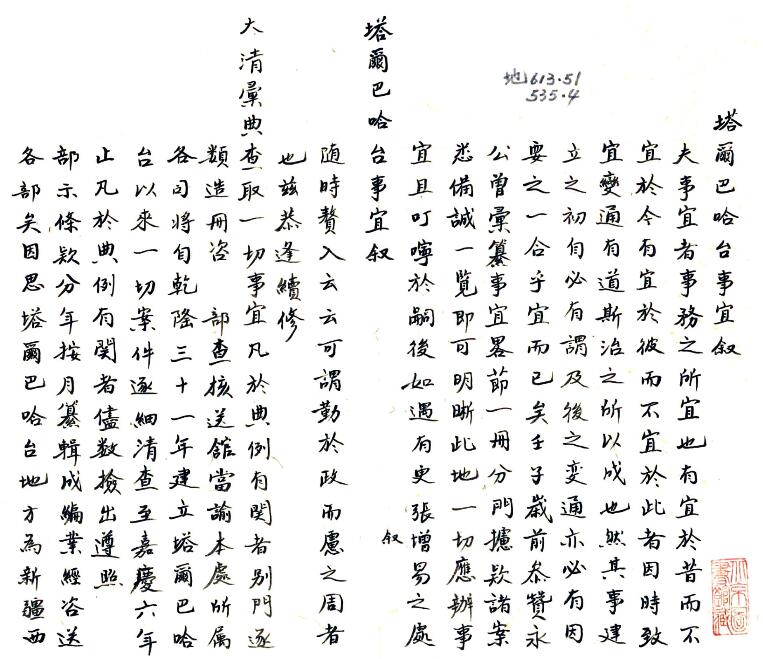 塔爾巴哈台事宜叙
夫事宜者事務之所宜也有宜於昔而不
宜於今有宜於彼而不宜於此者因時致
宜變通有道斯治之所以成也然其事建
立之初自必有謂及後之变通亦必有因
要之一合乎宜而已矣壬子歲前叅贊永
公曾彙纂事宜畧節一冊分門據欵諸案
悉備誠一覽即可明晰此地一切應辦事
宜且叮嚀於嗣後如遇有更張增易之處
地613.51
535.4
塔爾巴哈台事宜叙
叙
隨時贅入云云可謂勤於政而慮之周者
也兹恭逢續修
大清彙典查取一切事宜凡於典例有関者别門逐
類造冊咨 部查核送館當諭本處所属
各司将自乾隆三十一年建立塔爾巴哈
台以來一切案件逐細清查至嘉慶六年
止凡於典例有関者儘数撿出遵照
部示條欵分年按月纂輯成編業經咨送
各部矣因思塔爾巴哈台地方為新疆西